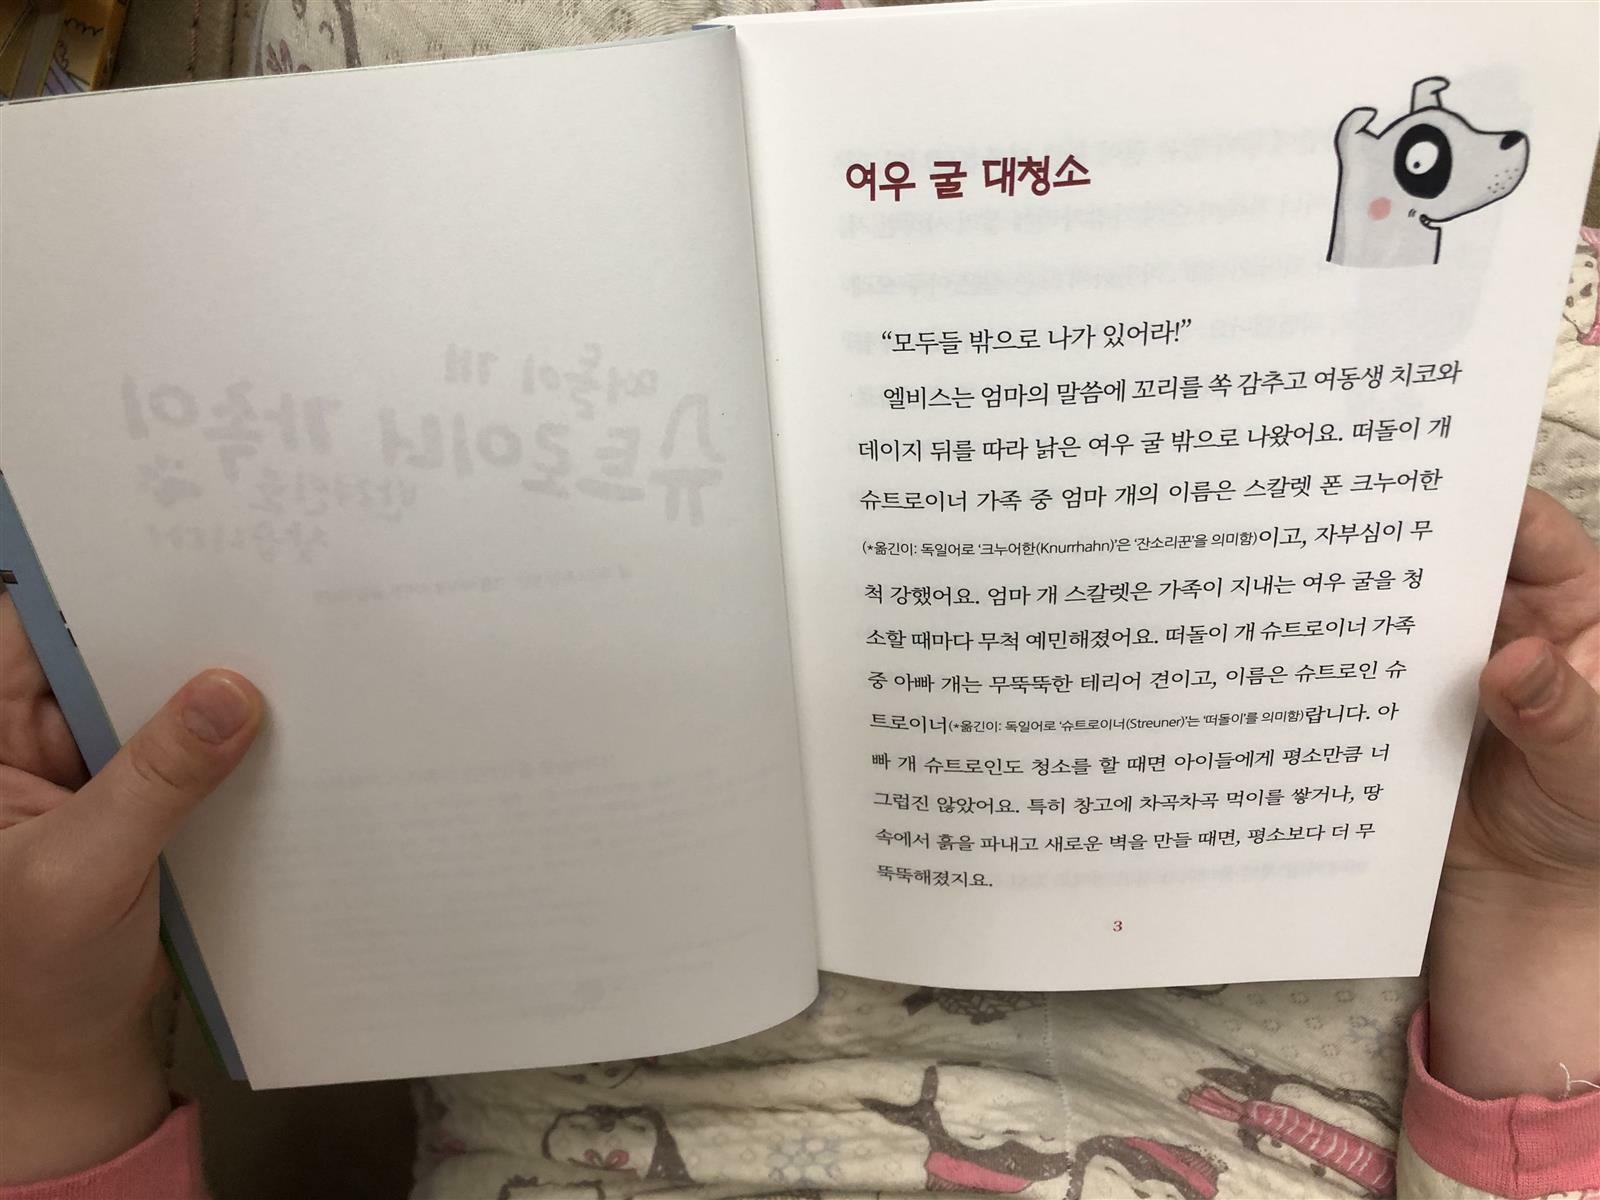 여우 굴 대청소
“모두들 밖으로 나가 있어라!”
엘비스는 엄마의 말씀에 꼬리를 쏙 감추고 여동생 치코와
데이지 뒤를 따라 낡은 여우 굴 밖으로 나왔어요. 떠돌이 개
슈트로이너 가족 중 엄마 개의 이름은 스칼렛 폰 크누어한
(*옮긴이: 독일어로 ‘크누어한(Knurrhahn)’은 ‘잔소리꾼’을 의미함)이고, 자부심이 무
척 강했어요. 엄마 개 스칼렛은 가족이 지내는 여우 굴을 청
소할 때마다 무척 예민해졌어요. 떠돌이 개 슈트로이너 가족
중 아빠 개는 무뚝뚝한 테리어 견이고, 이름은 슈트로인 슈
트로이너(*옮긴이: 독일어로 ‘슈트로이너(Streuner)’는 ‘떠돌이’를 의미함)랍니다. 아
빠 개 슈트로인도 청소를 할 때면 아이들에게 평소만큼 너
그럽진 않았어요. 특히 창고에 차곡차곡 먹이를 쌓거나, 땅
속에서 흙을 파내고 새로운 벽을 만들 때면, 평소보다 더 무
뚝뚝해졌지요.
3
떠돌이 개
슈트로이너 가족이
반려인을
찾습니다!